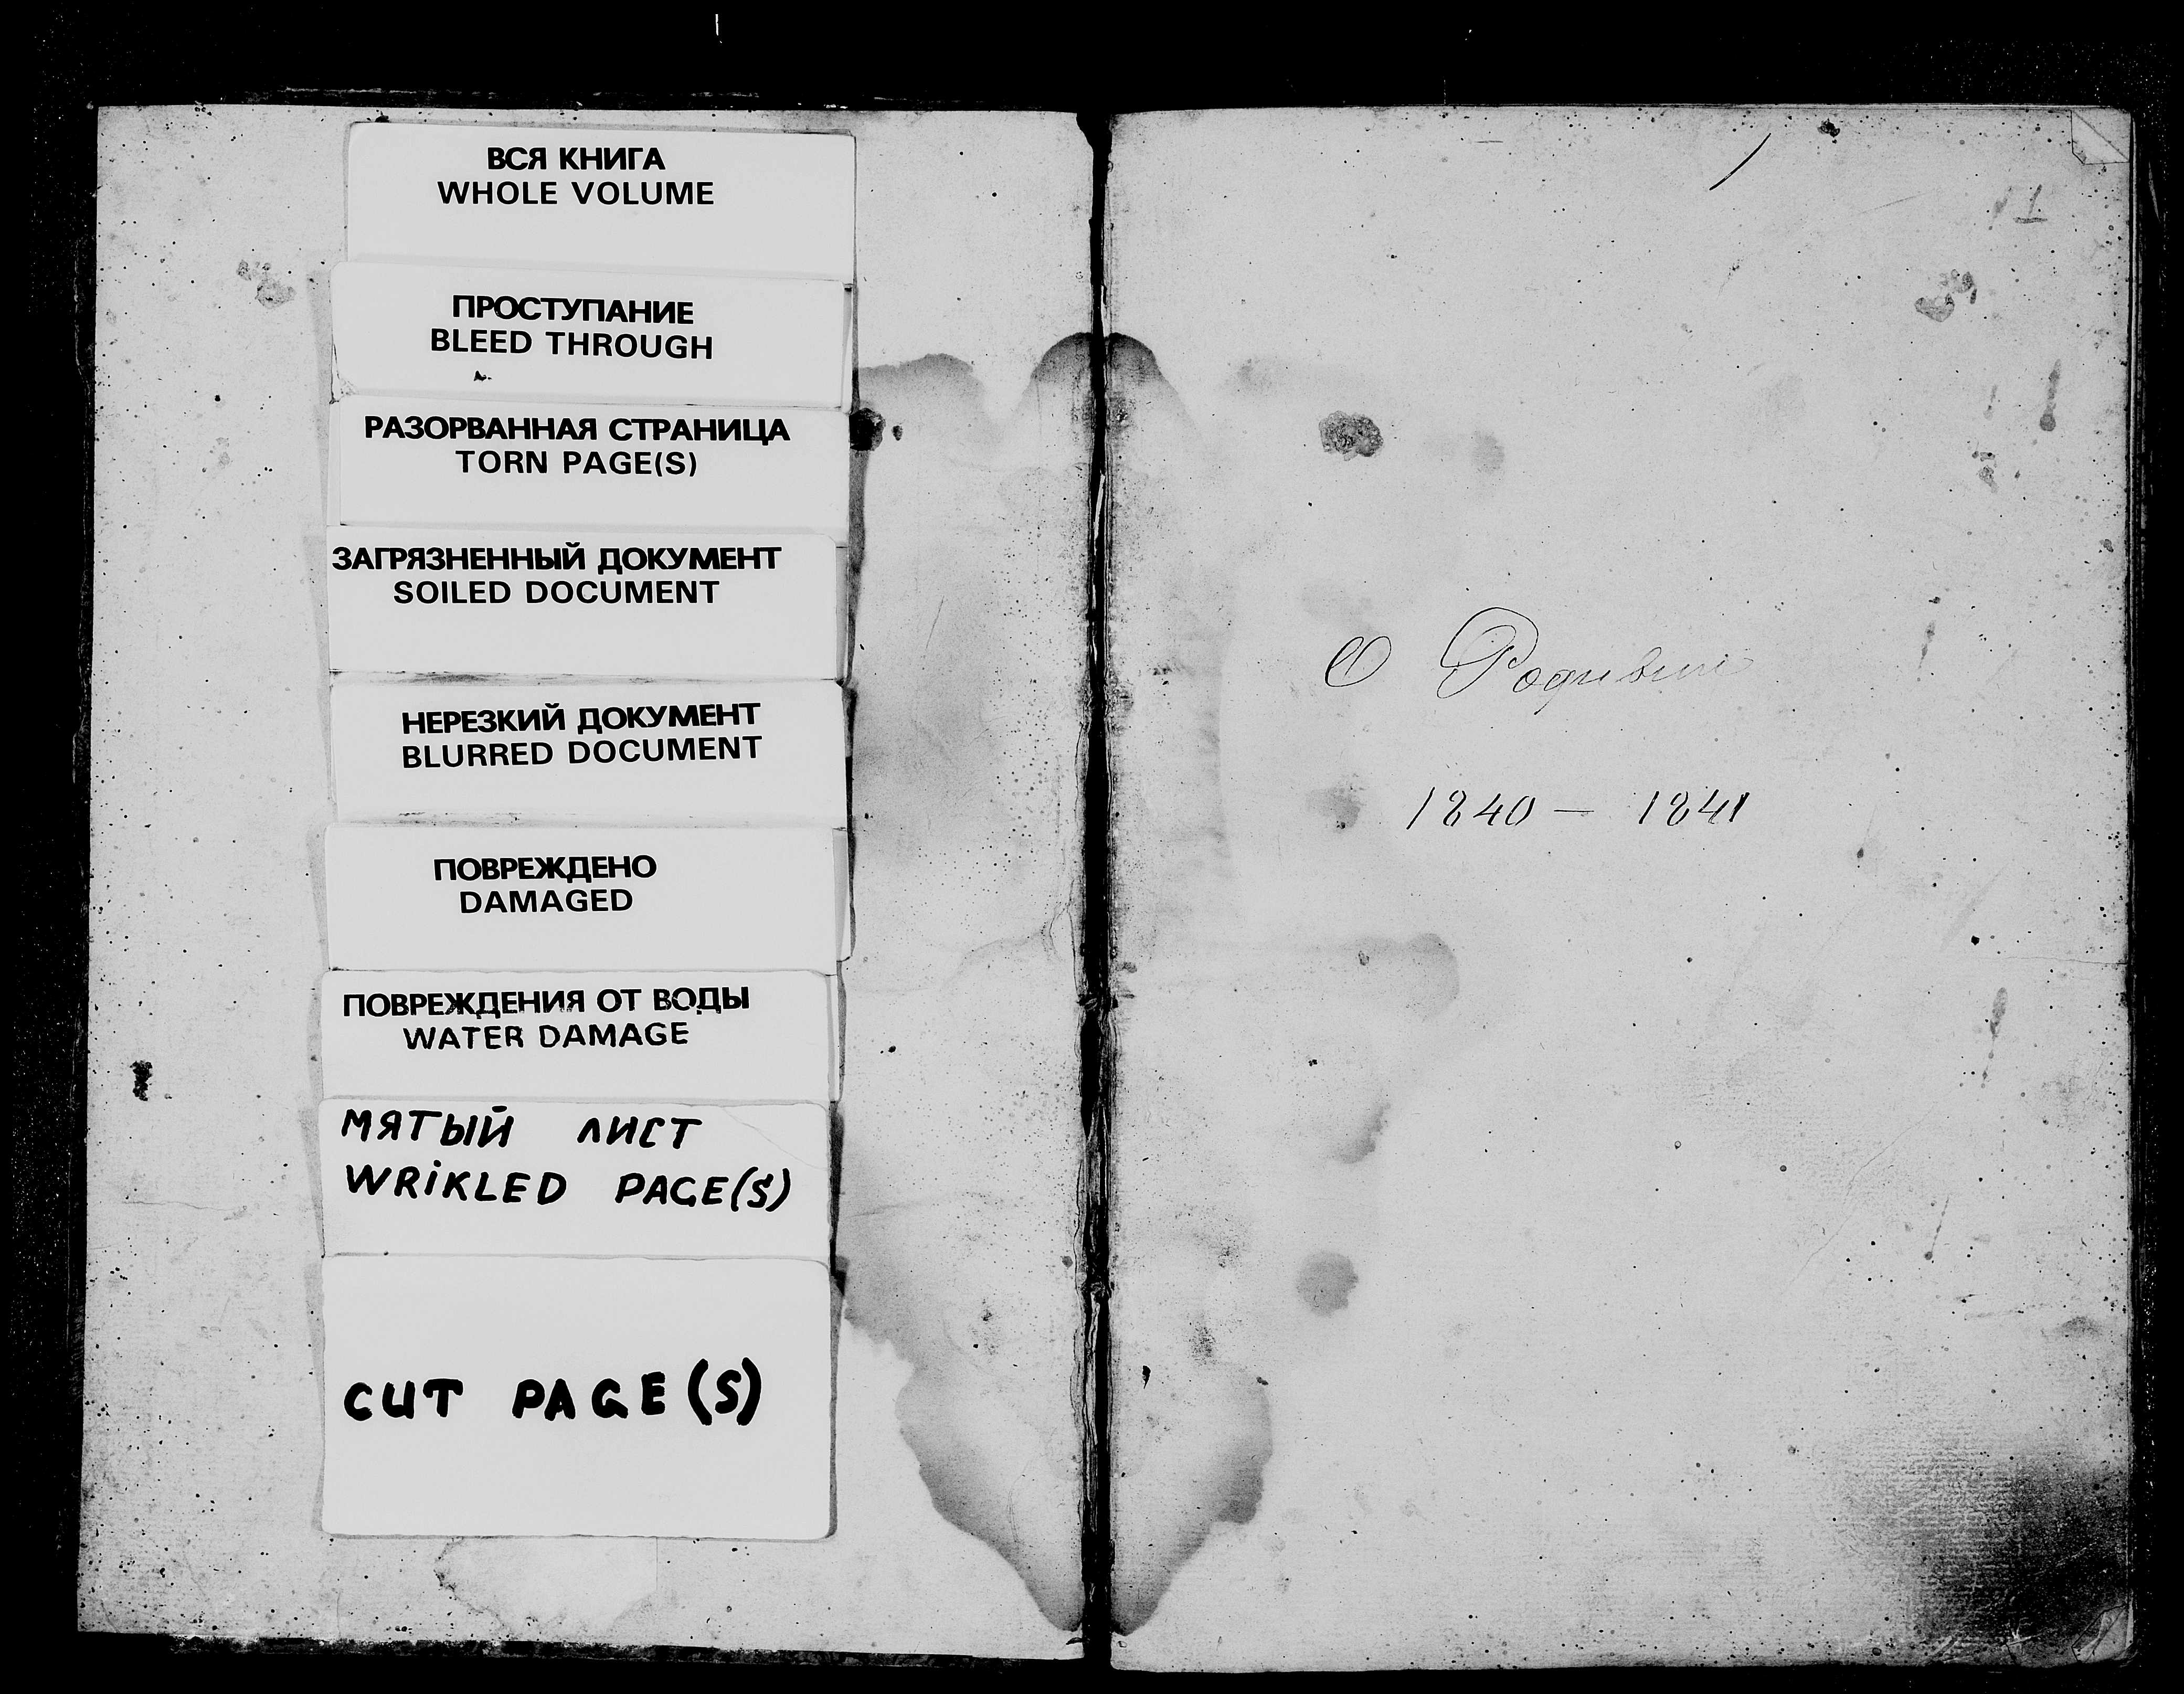 ВСЯ КНИГА
WHOLE VOLUME
ПРОСТУПАНИЕ
BLEED THROUGH
РАЗОРВАННАЯ СТРАНИЦА
TORN PAGE(S)
ЗАГРЯЗНЕННЫЙ ДОКУМЕНТ
SOILED DOCUMENT
НЕРЕЗКИЙ ДОКУМЕНТ
BLURRED DOCUMENT
ПОВРЕЖДЕНО
DAMAGED
ПОВРЕЖДЕНИЯ ОТ ВОДЫ
WATER DAMAGE
МЯТЫЙ ЛИСТ
WRIKLED PAGE(S)
CUT PAGE(S)
1
О
1840 — 1841